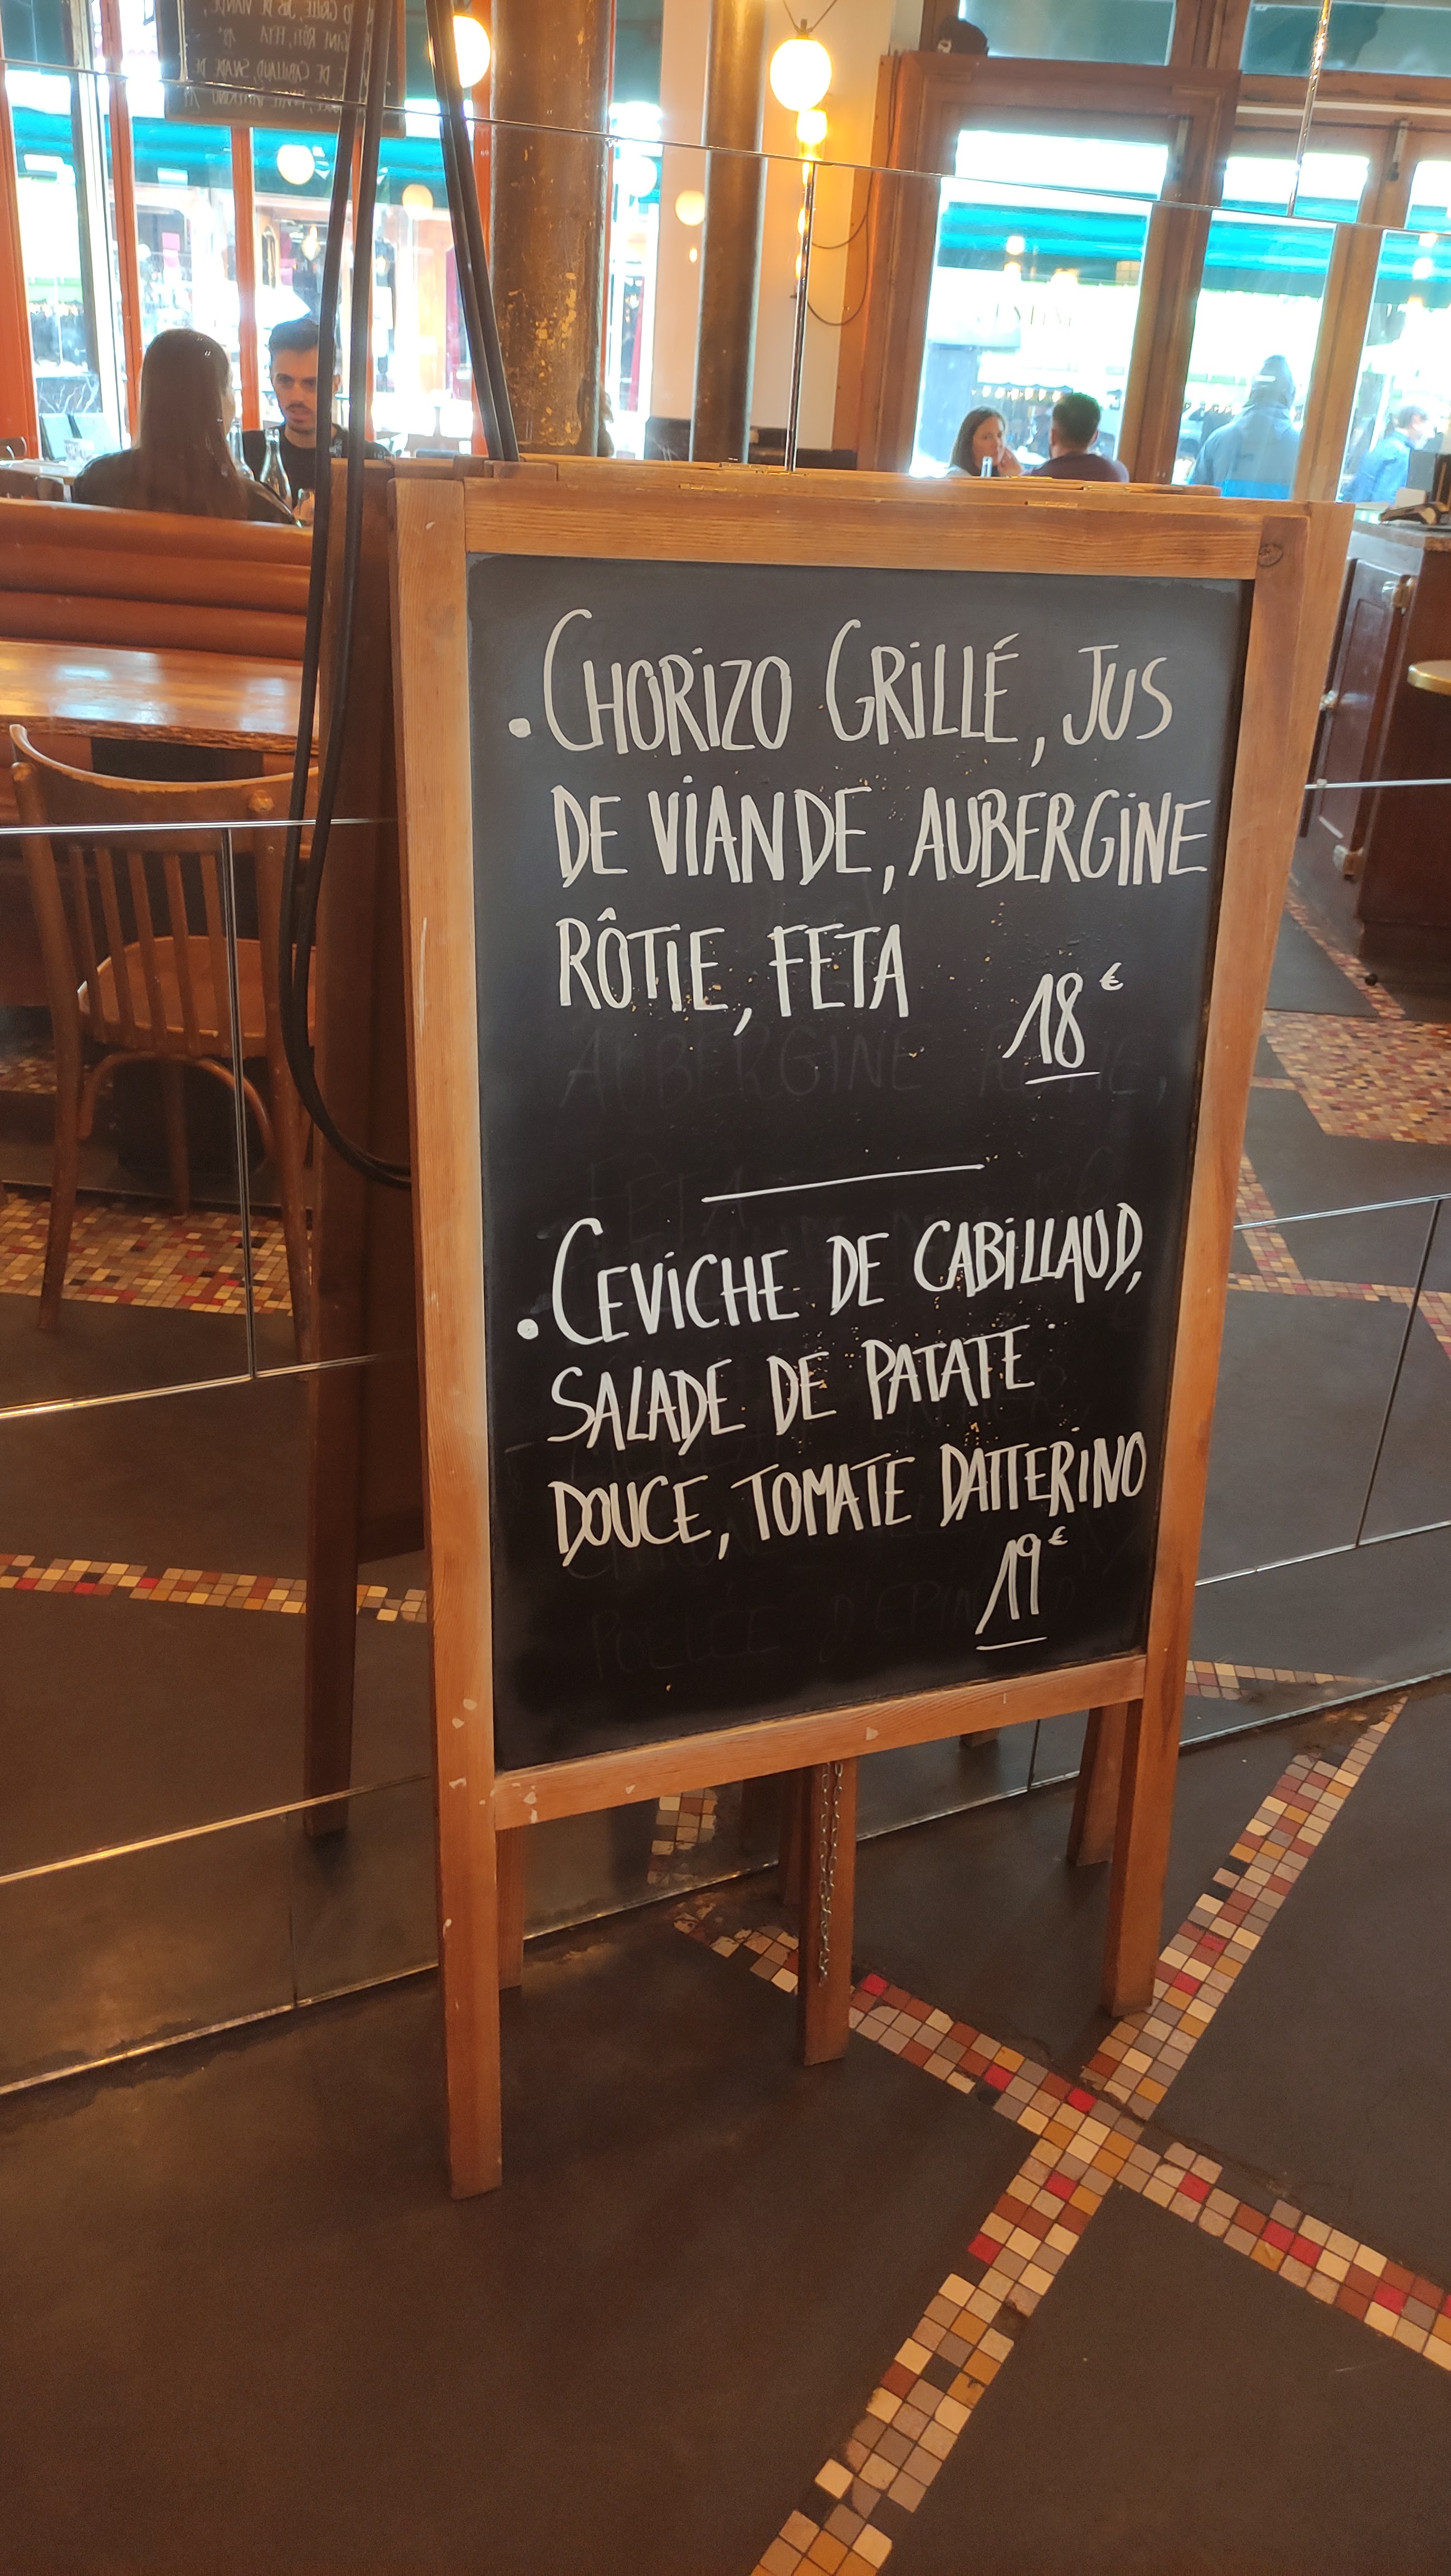 • CHORIZO GRILLÉ, JUS
DE VIANDE, AUBERGINE
RÔTIE, FETA
18€
• CEVICHE DE CABILLAUD,
SALADE DE PATATE
DOUCE, TOMATE DATTERINO
19€